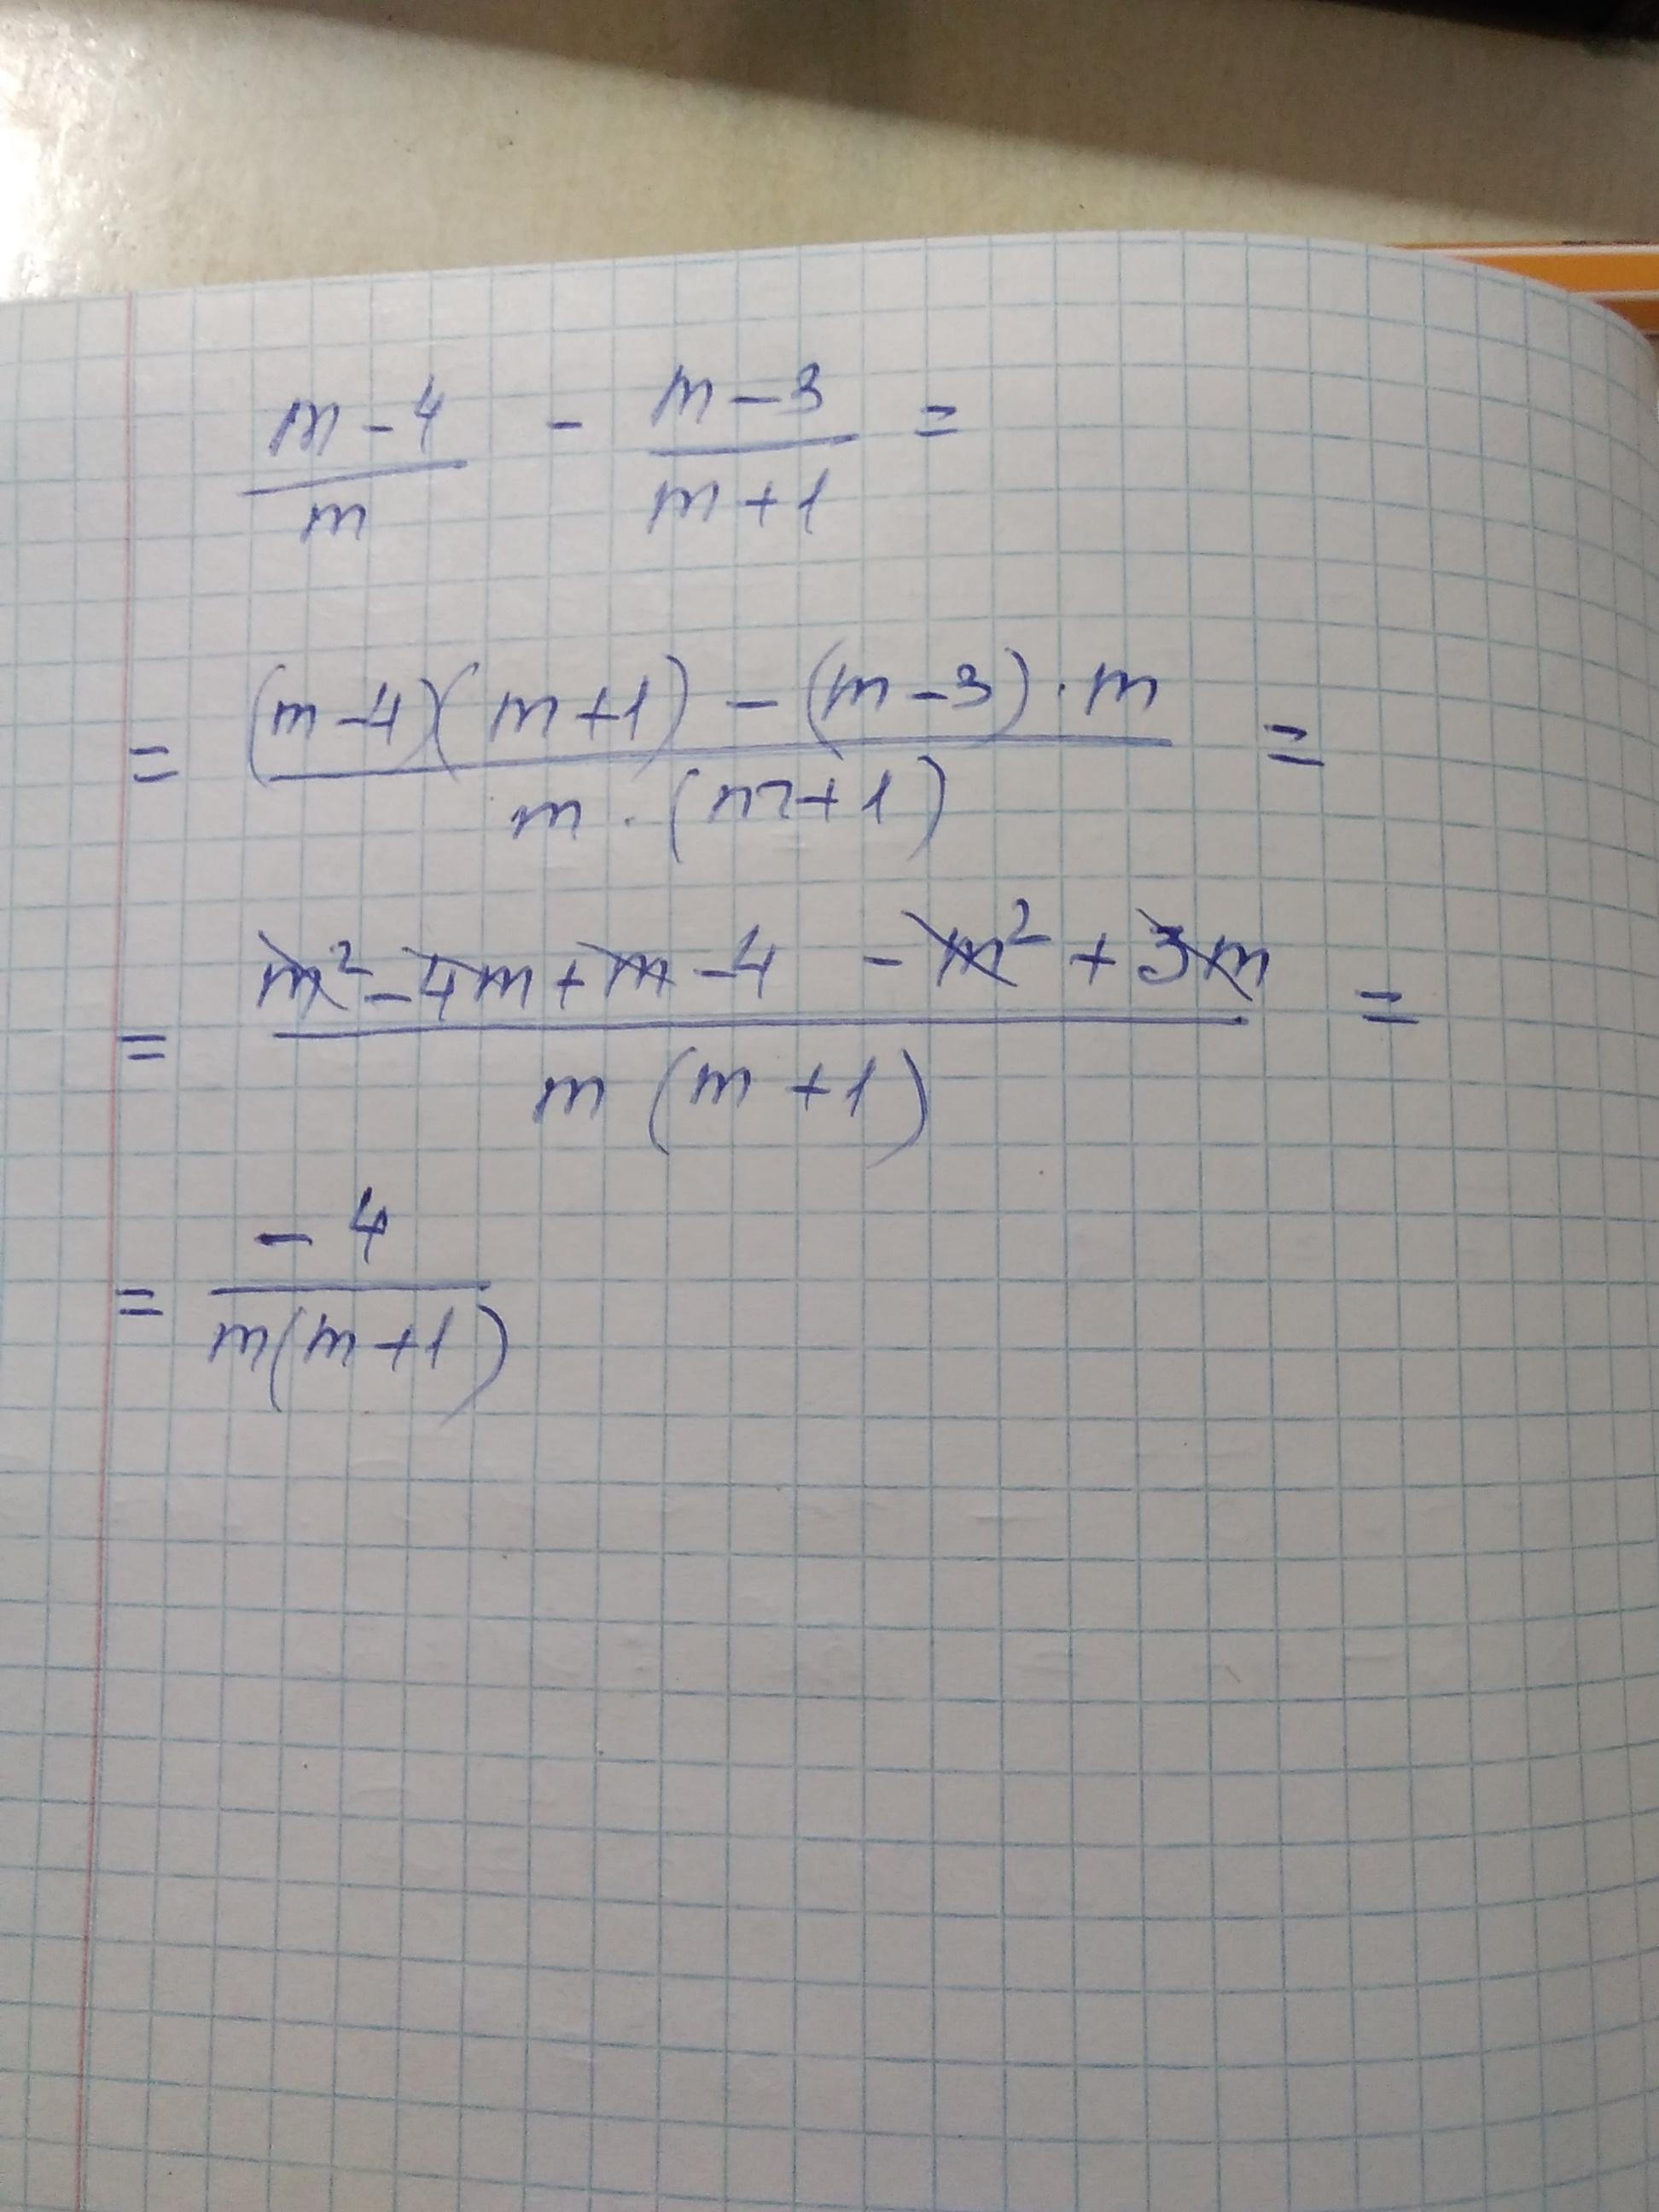 (m-4)/m - (m-3)/(m+1) =
= ((m-4)(m+1) - (m-3)·m)/(m·(m+1)) =
= (m²-4m+m-4 -m²+3m)/(m(m+1)) =
= (-4)/(m(m+1))